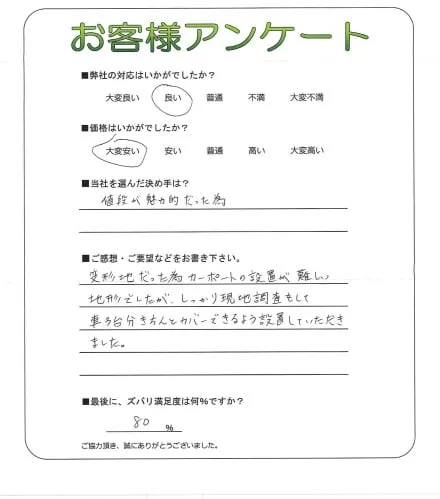 お客様アンケート
■弊社の対応はいかがでしたか?
大変良い 良い 普通 不満 大変不満
■価格はいかがでしたか?
大変安い 安い 普通 高い 大変高い
■当社を選んだ決め手は?
値段が魅力的だった為
■ご感想・ご要望などをお書き下さい。
変形地だった為カーポートの設置が難しい
地形でしたが、しっかり現地調査もして
車3台分きちんとカバーできるよう設置していただき
ました。
■最後に、ズバリ満足度は何%ですか?
80 %
ご協力頂き、誠にありがとうございました。